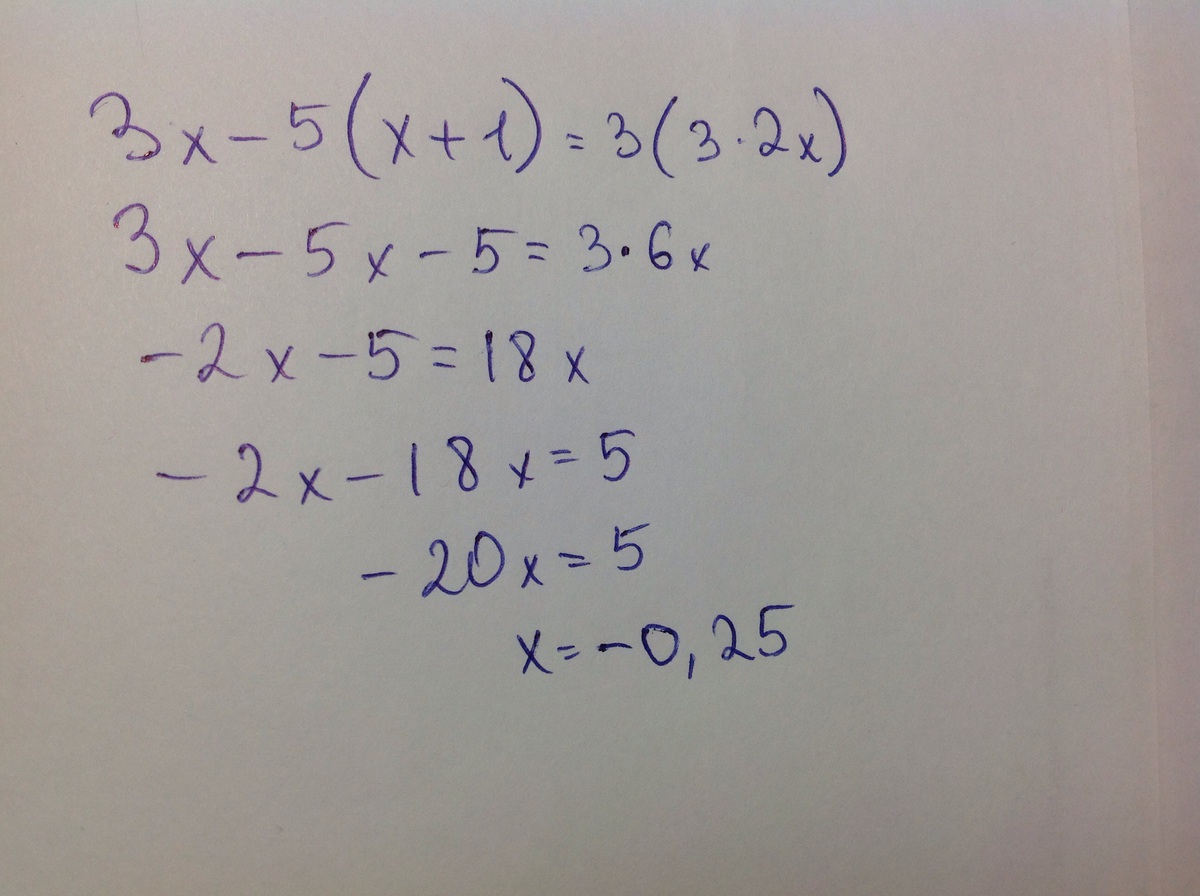 3x - 5(x + 1) = 3(3 · 2x)
3x - 5x - 5 = 3 · 6x
-2x - 5 = 18x
-2x - 18x = 5
-20x = 5
x = -0,25